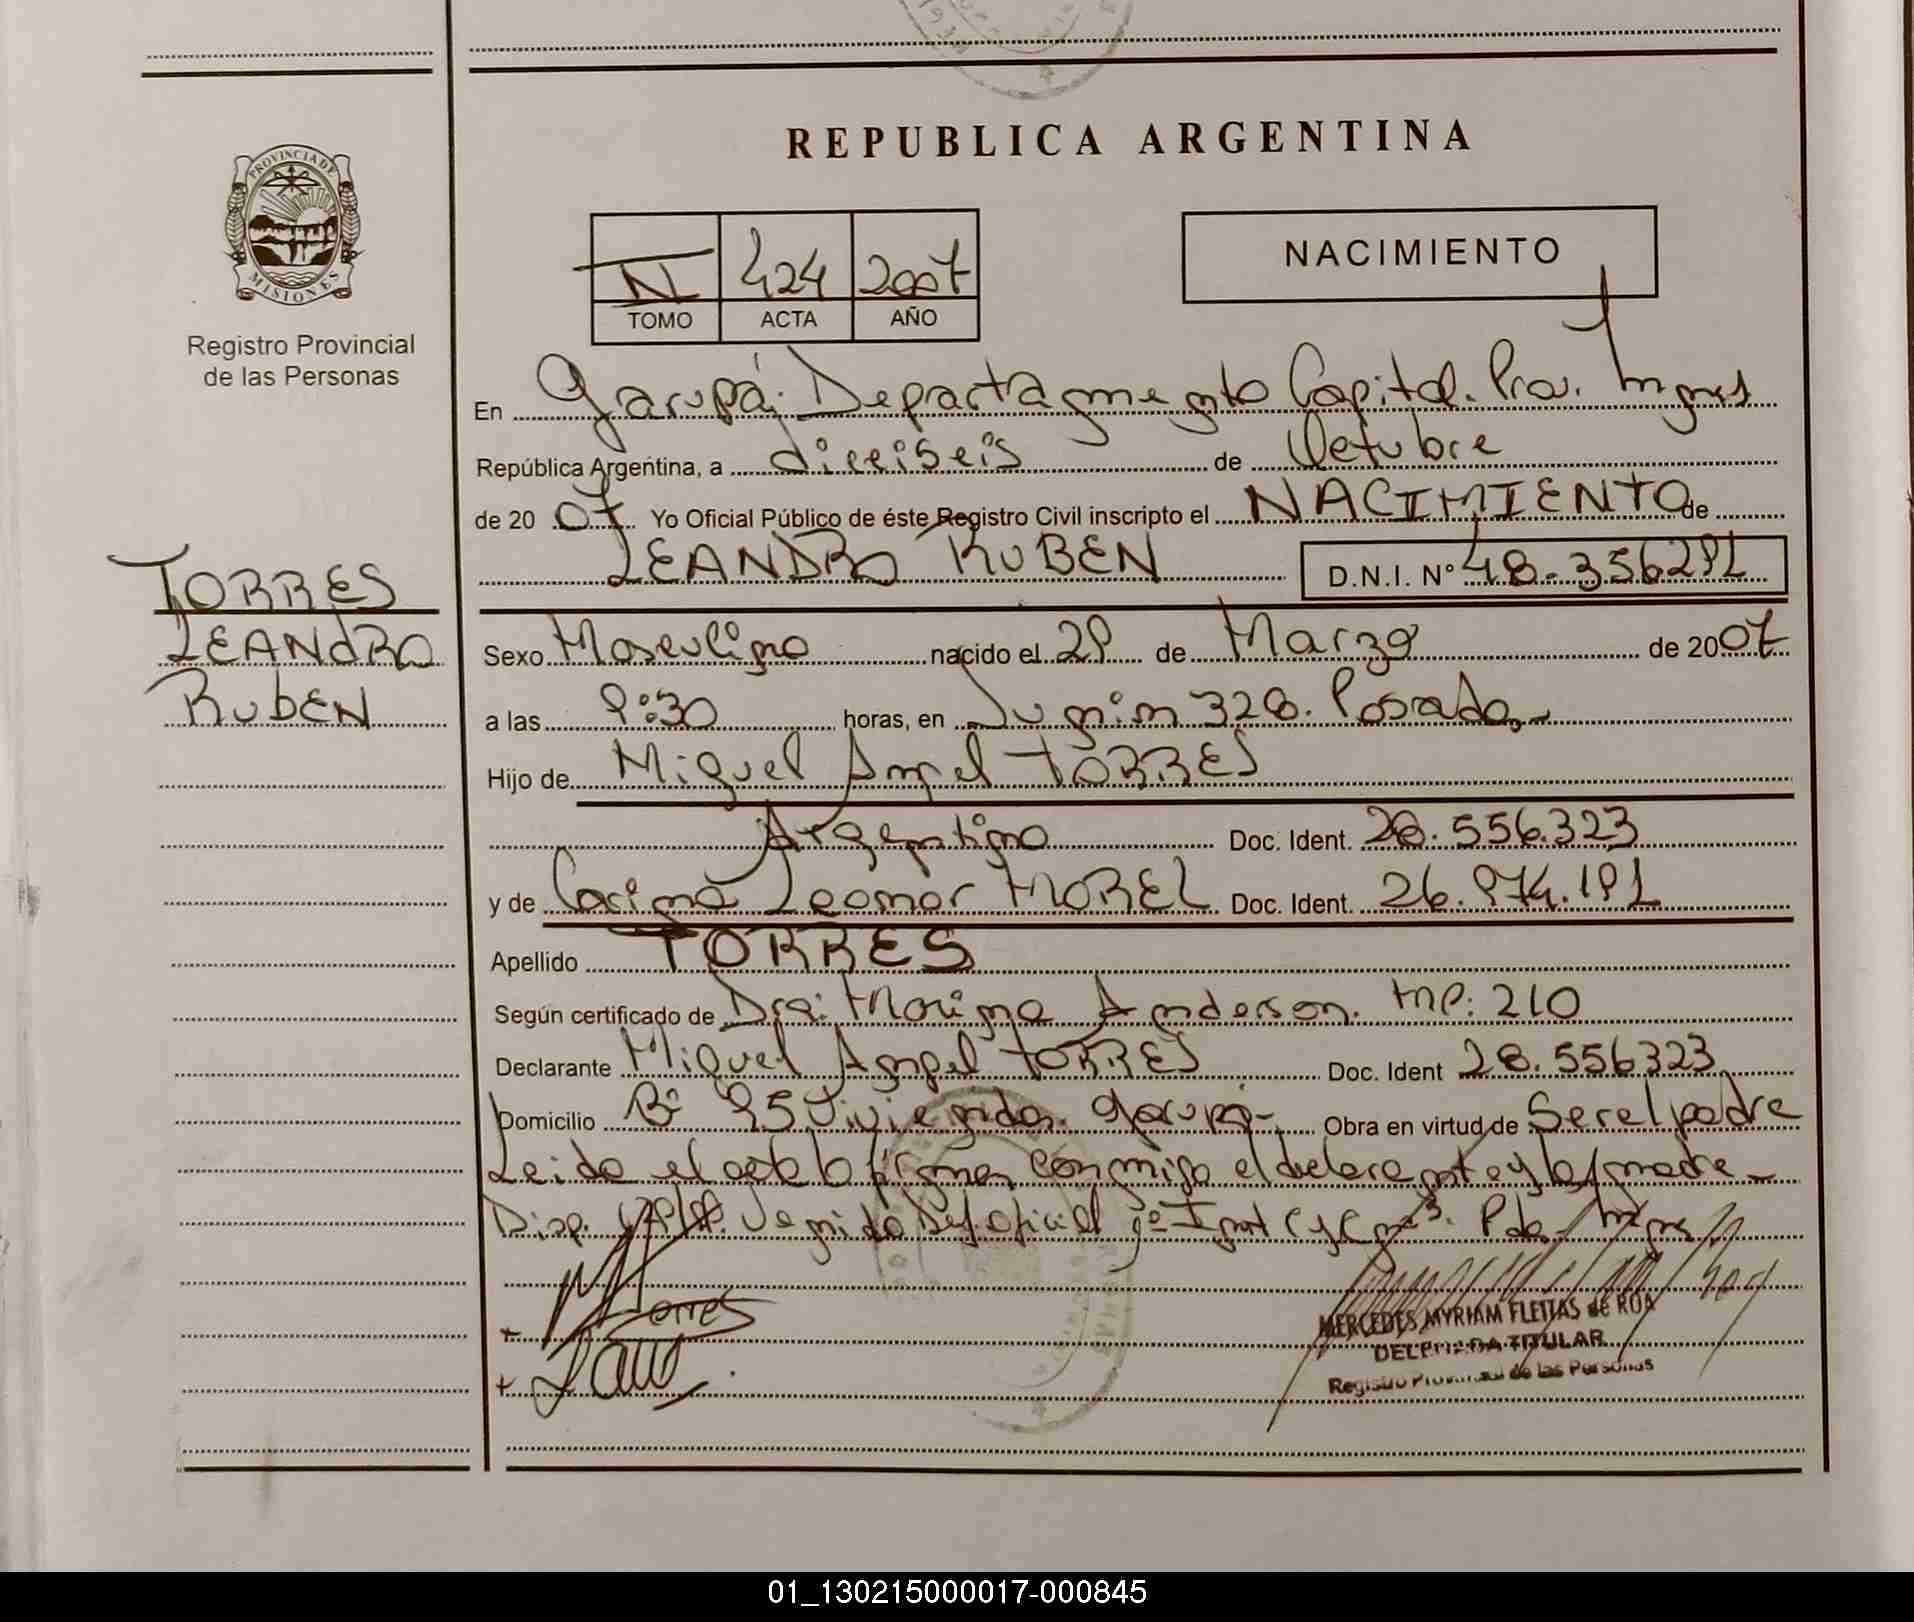 REPUBLICA ARGENTINA
PROVINCIA DE
MISIONES
Registro Provincial
de las Personas
424 2007
TOMO ACTA AÑO
NACIMIENTO
En Garupá. Departamento Capital. Prov. Mnes
República Argentina, a dieciseis de Octubre
de 2007 Yo Oficial Público de éste Registro Civil inscripto el NACIMIENTO de
LEANDRO RUBEN D.N.I. Nº 48.356291
TORRES
LEANDRO
RUBEN
Sexo Masculino nacido el 29 de Marzo de 2007
a las 9:30 horas, en Junin 328. Posadas
Hijo de Miguel Angel TORRES
Argentino Doc. Ident. 28.556.323
y de Leonor MOREL Doc. Ident. 26.974.191
Apellido TORRES
Según certificado de Dra: Marina Anderson. MP: 210
Declarante Miguel Angel TORRES Doc. Ident 28.556323
Domicilio Bº 95 Viviendas. Garupá- Obra en virtud de Ser el padre
Leida el acta la firman conmigo el declarante y la madre
Disp. Def. oficial
Torres
MERCEDES MYRIAM FLEITAS de ROA
DELEGADA TITULAR
Registro Provincial de las Personas
01_130215000017-000845